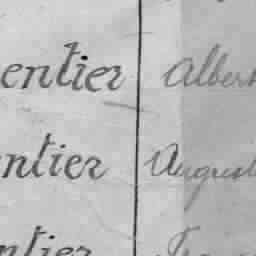 entier Albert
ntier August
ntier